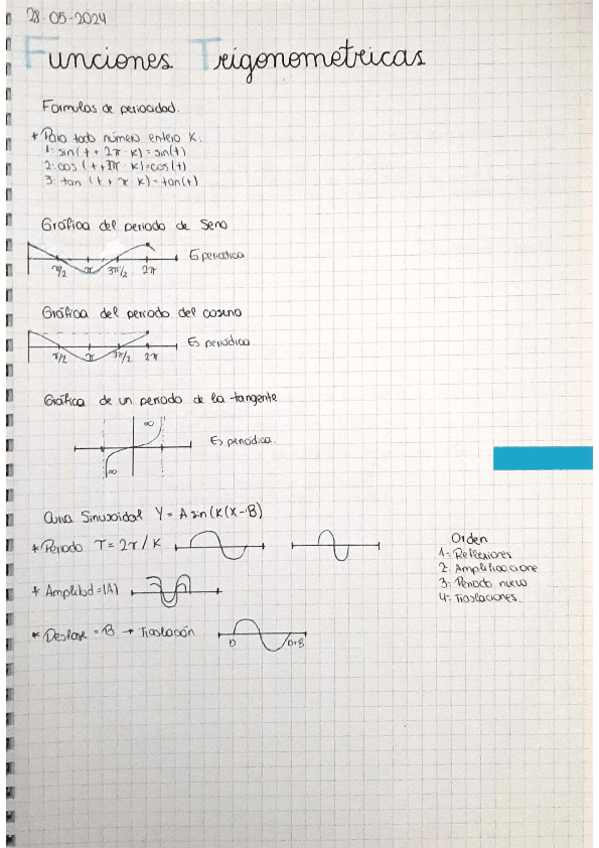 28-05-2024
Funciones Trigonometricas
Formulas de periocidad.
* Para todo número entero K:
1- sin(t + 2π · K) = sin(t)
2- cos (t + 2π · K) = cos(t)
3- tan (t + π K) = tan(t)
Gráfica del periodo de Seno
Es periodica
π/2 π 3π/2 2π
Gráfica del periodo del coseno
Es periodica
π/2 π 3π/2 2π
Gráfica de un periodo de la tangente
∞
Es periodica.
∞
Curva Sinusoidal Y = A sin(K(X-B)
* Periodo T = 2π/K
* Amplitud = |A|
* Desfase = B → Traslación
0 0+B
Orden
1- Reflexiones
2- Amplificacione
3- Periodo nuevo
4- Traslaciones.